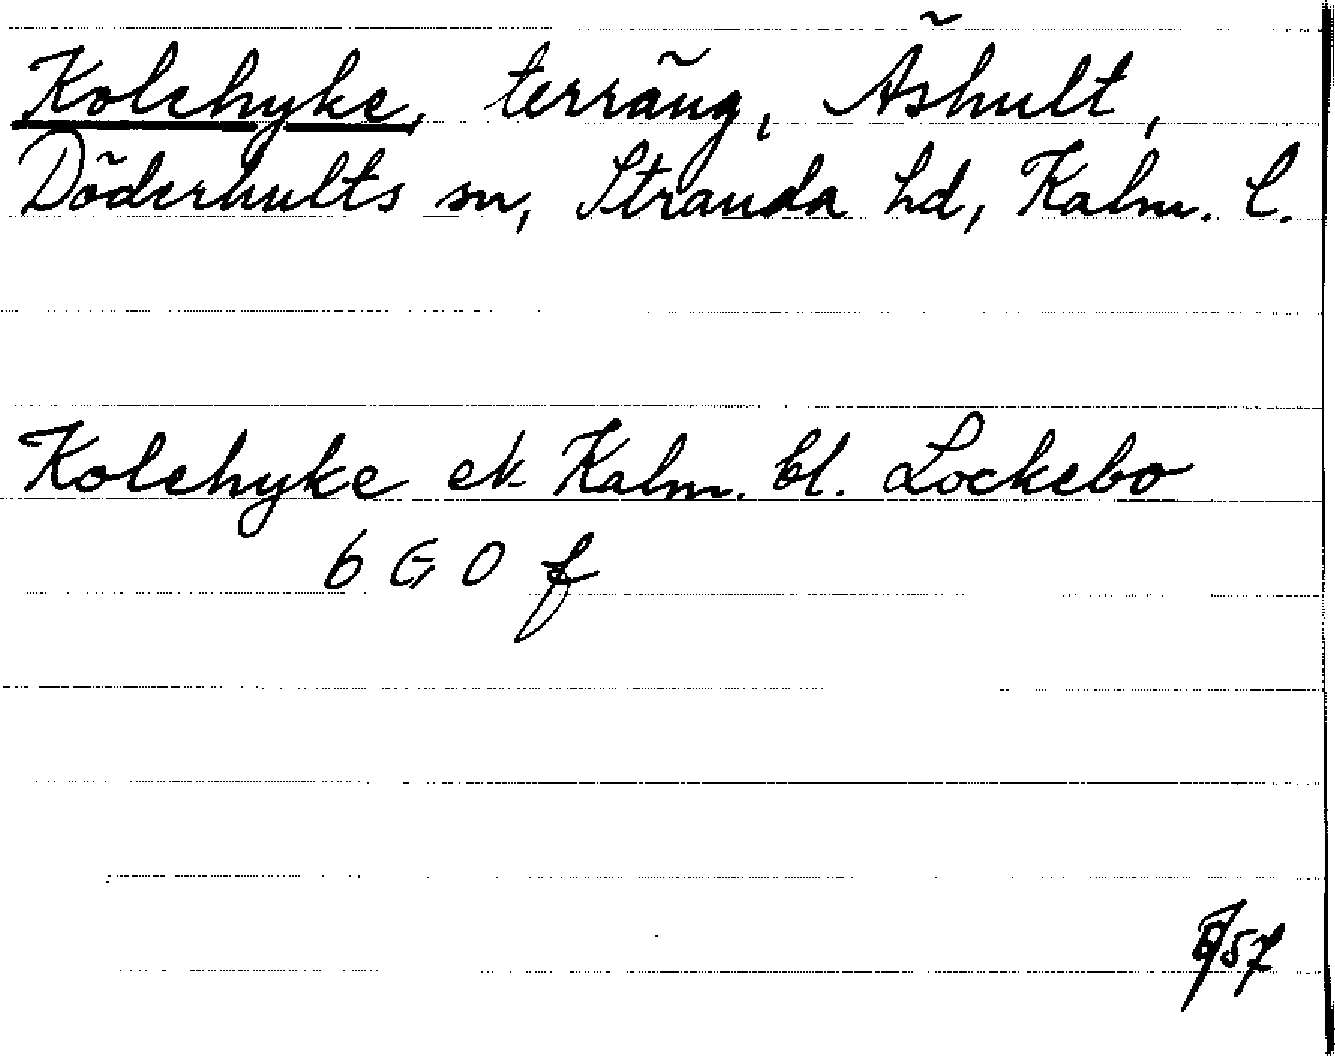 Kolehyke, terräng, Äshult,
Döderhults sn, Stranda hd, Kalm. l.
Kolehyke ek Kalm. bl. Lockebo
6 G 0 f
57